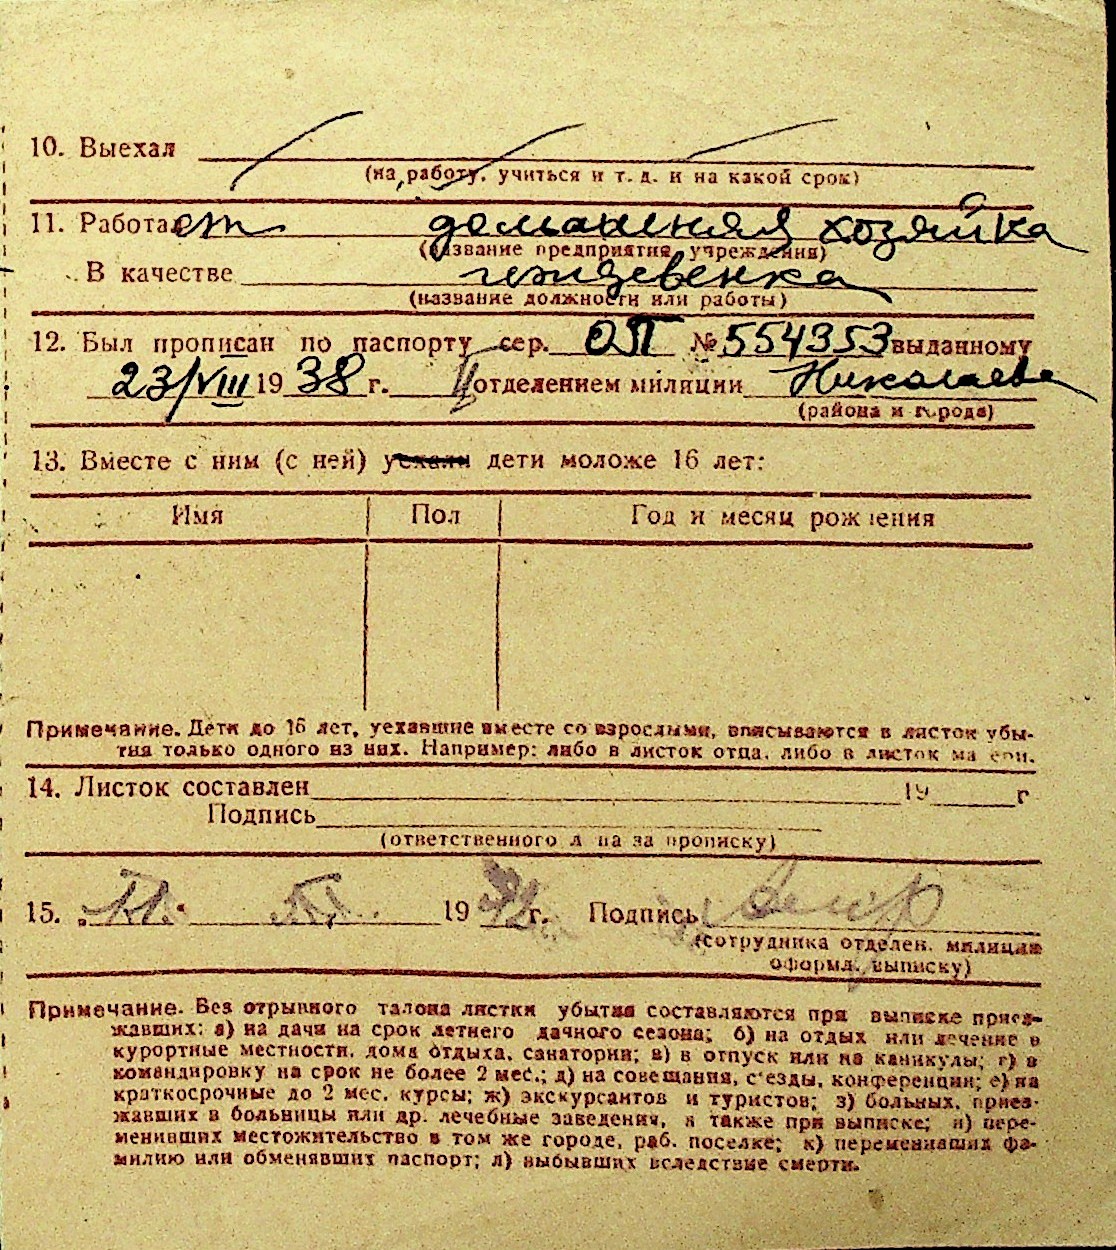 10. Выехал
(на работу, учиться и т. д. и на какой срок)
11. Работает домашняя хозяйка
(название предприятия, учреждения)
В качестве иждевенка
(название должности или работы)
12. Был прописан по паспорту сер. ОП № 554353 выданному
23/VIII 1938 г. II отделением милиции Николаева
(района и города)
13. Вместе с ним (с ней) уехали дети моложе 16 лет:
Имя Пол Год и месяц рождения
Примечание. Дети до 16 лет, уехавшие вместе со взрослыми, вписываются в листок убы-
тия только одного из них. Например: либо в листок отца, либо в листок матери.
14. Листок составлен 19 г
Подпись
(ответственного лица за прописку)
15. 19 г. Подпись
(сотрудника отделен. милиции
оформл. выписку)
Примечание. Без отрывного талона листки убытия составляются при выписке приез-
жавших: а) на дачи на срок летнего дачного сезона; б) на отдых или лечение в
курортные местности, дома отдыха, санатории; в) в отпуск или на каникулы; г) в
командировку на срок не более 2 мес.; д) на совещания, с'езды, конференции; е) на
краткосрочные до 2 мес. курсы; ж) экскурсантов и туристов; з) больных, приез-
жавших в больницы или др. лечебные заведения, а также при выписке; и) пере-
менивших местожительство в том же городе, раб. поселке; к) переменивших фа-
милию или обменявших паспорт; л) выбывших вследствие смерти.